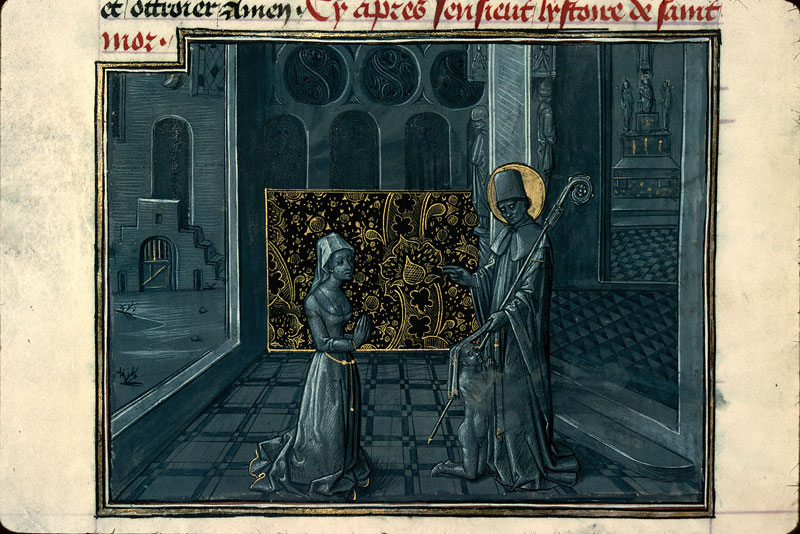 et ottroier Amen. Cy apres sensieut lystoire de saint
mor.